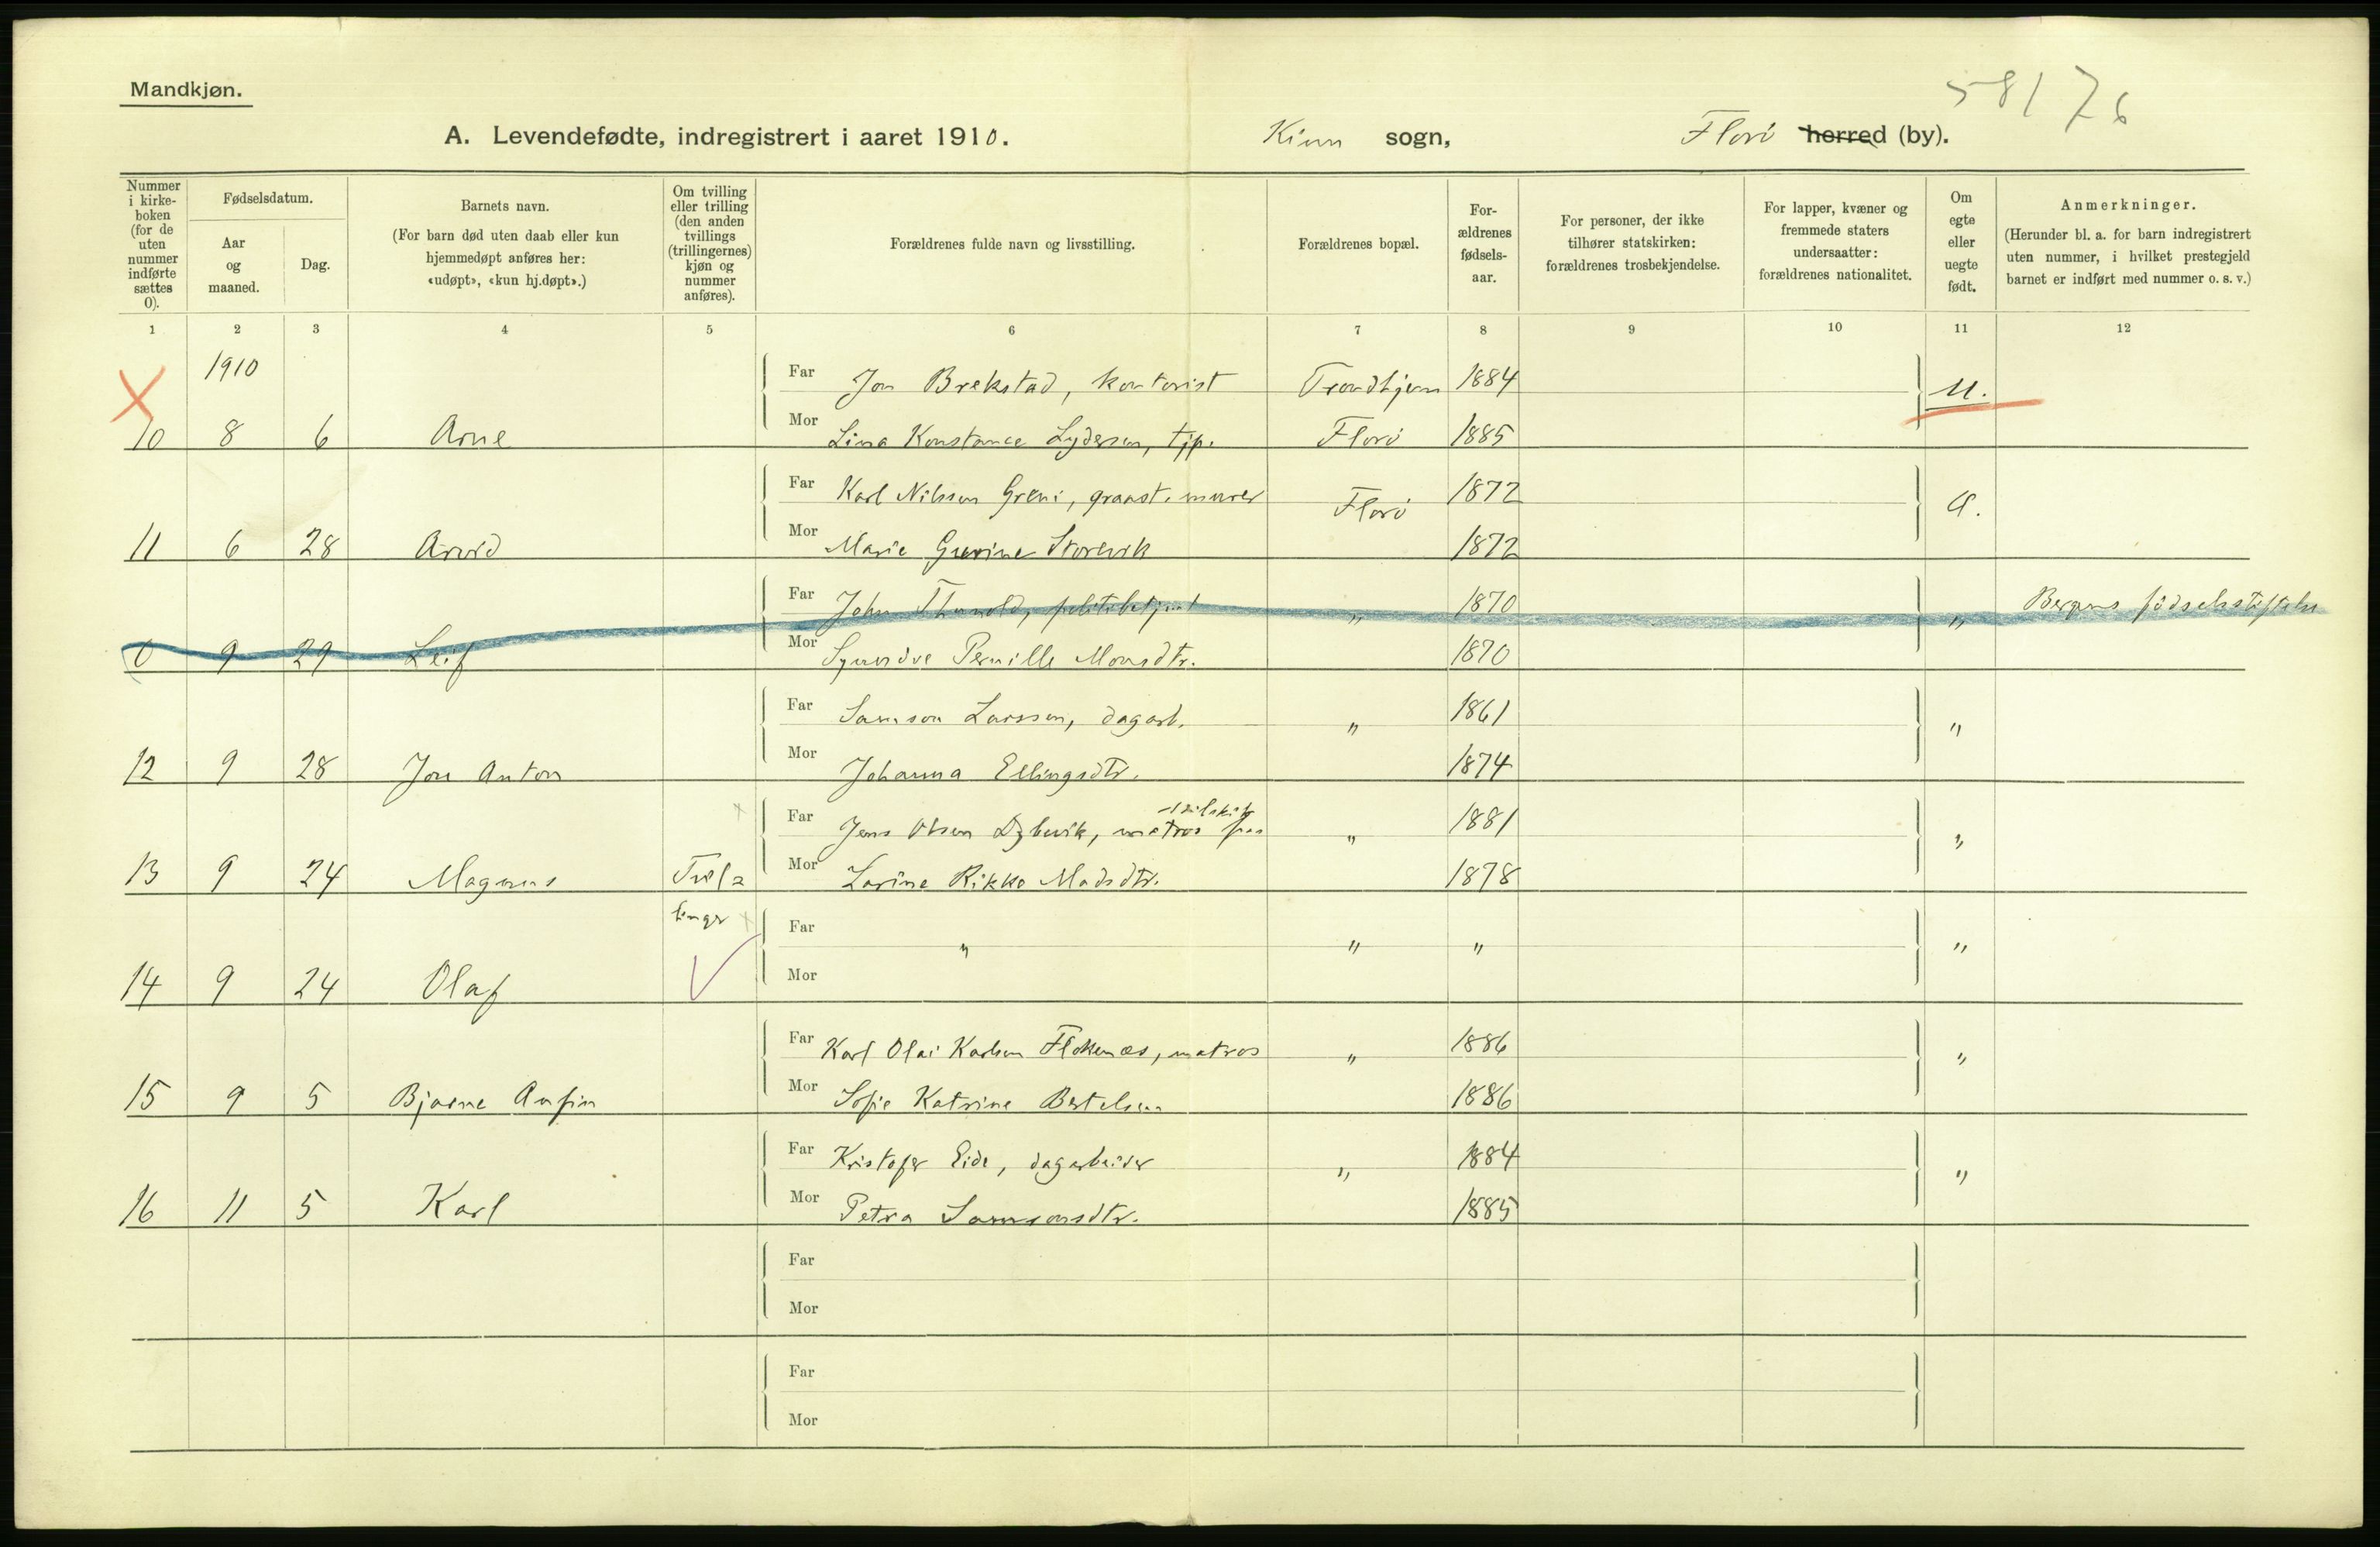 Mandkjøn.
58/76
A. Levendefødte, indregistrert i aaret 1910. Kinn sogn, Florø herred (by).
Nummer i kirke-boken (for de uten nummer indførte sættes 0).
Fødselsdatum.
Aar og maaned.
Dag.
Barnets navn.
(For barn død uten daab eller kun hjemmedøpt anføres her: «udøpt», «kun hj.døpt».)
Om tvilling eller trilling (den anden tvillings (trillingernes) kjøn og nummer anføres).
Forældrenes fulde navn og livsstilling.
Forældrenes bopæl.
For-ældrenes fødsels-aar.
For personer, der ikke tilhører statskirken: forældrenes trosbekjendelse.
For lapper, kvæner og fremmede staters undersaatter: forældrenes nationalitet.
Om egte eller uegte født.
Anmerkninger.
(Herunder bl. a. for barn indregistrert uten nummer, i hvilket prestegjeld barnet er indført med nummer o. s. v.)
1 2 3 4 5 6 7 8 9 10 11 12
1910
Far Jon Brekstad, kontorist Trondhjem 1884 U.
10 8 6 Arne Mor Lina Konstance Lydersen, tjp. Florø 1885
Far Karl Nilssen Greni, graast. murer Florø 1872 A.
11 6 28 Arvid Mor Marie Gurine Storevik 1872
Far John Thunold, politibetjent " 1870 " Bergens fødselsstiftelse
0 9 29 Leif Mor Synneve Pernille Monsdtr. 1870
Far Samson Larssen, dagarb. " 1861 "
12 9 28 Jon Anton Mor Johanna Ellingsdtr. 1874
Far Jens Olsen Dybevik, matros paa seilskib " 1881 "
13 9 24 Magnus Tvil= Mor Larine Rikke Madsdtr. 1878
linger
Far " " " "
14 9 24 Olaf Mor
Far Karl Olai Karlsen Flokenæs, matros " 1886 "
15 9 5 Bjarne Anfin Mor Sofie Katrine Bertelsen 1886
Far Kristofer Eide, dagarbeider " 1884 "
16 11 5 Karl Mor Petra Samsonsdtr. 1885
Far
Mor
Far
Mor